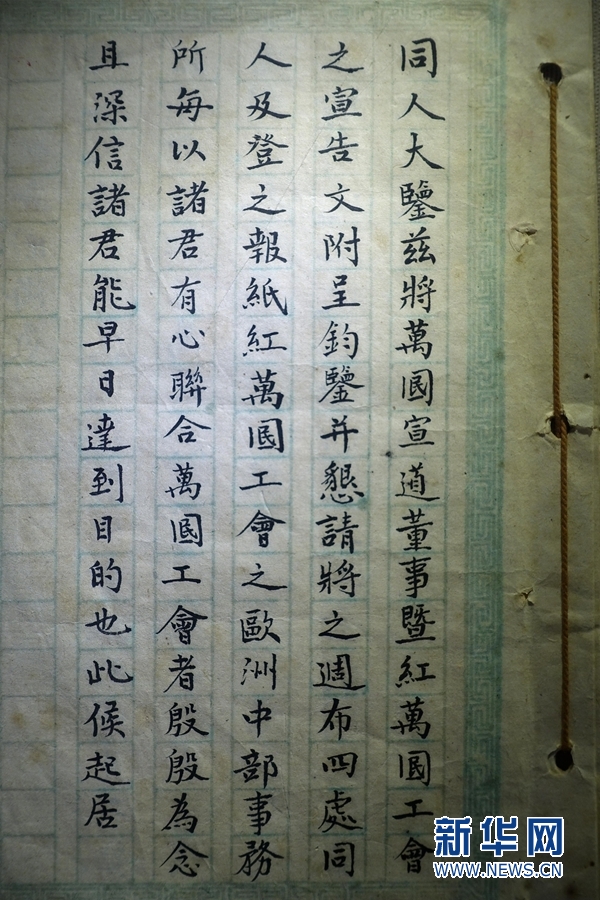 同人大鑒茲將萬國宣道董事暨紅萬國工會
之宣告文附呈鈞鑒并懇請將之週布四處同
人及登之報紙紅萬國工會之歐洲中部事務
所每以諸君有心聯合萬國工會者殷殷為念
且深信諸君能早日達到目的也此候起居
新华网
WWW.NEWS.CN